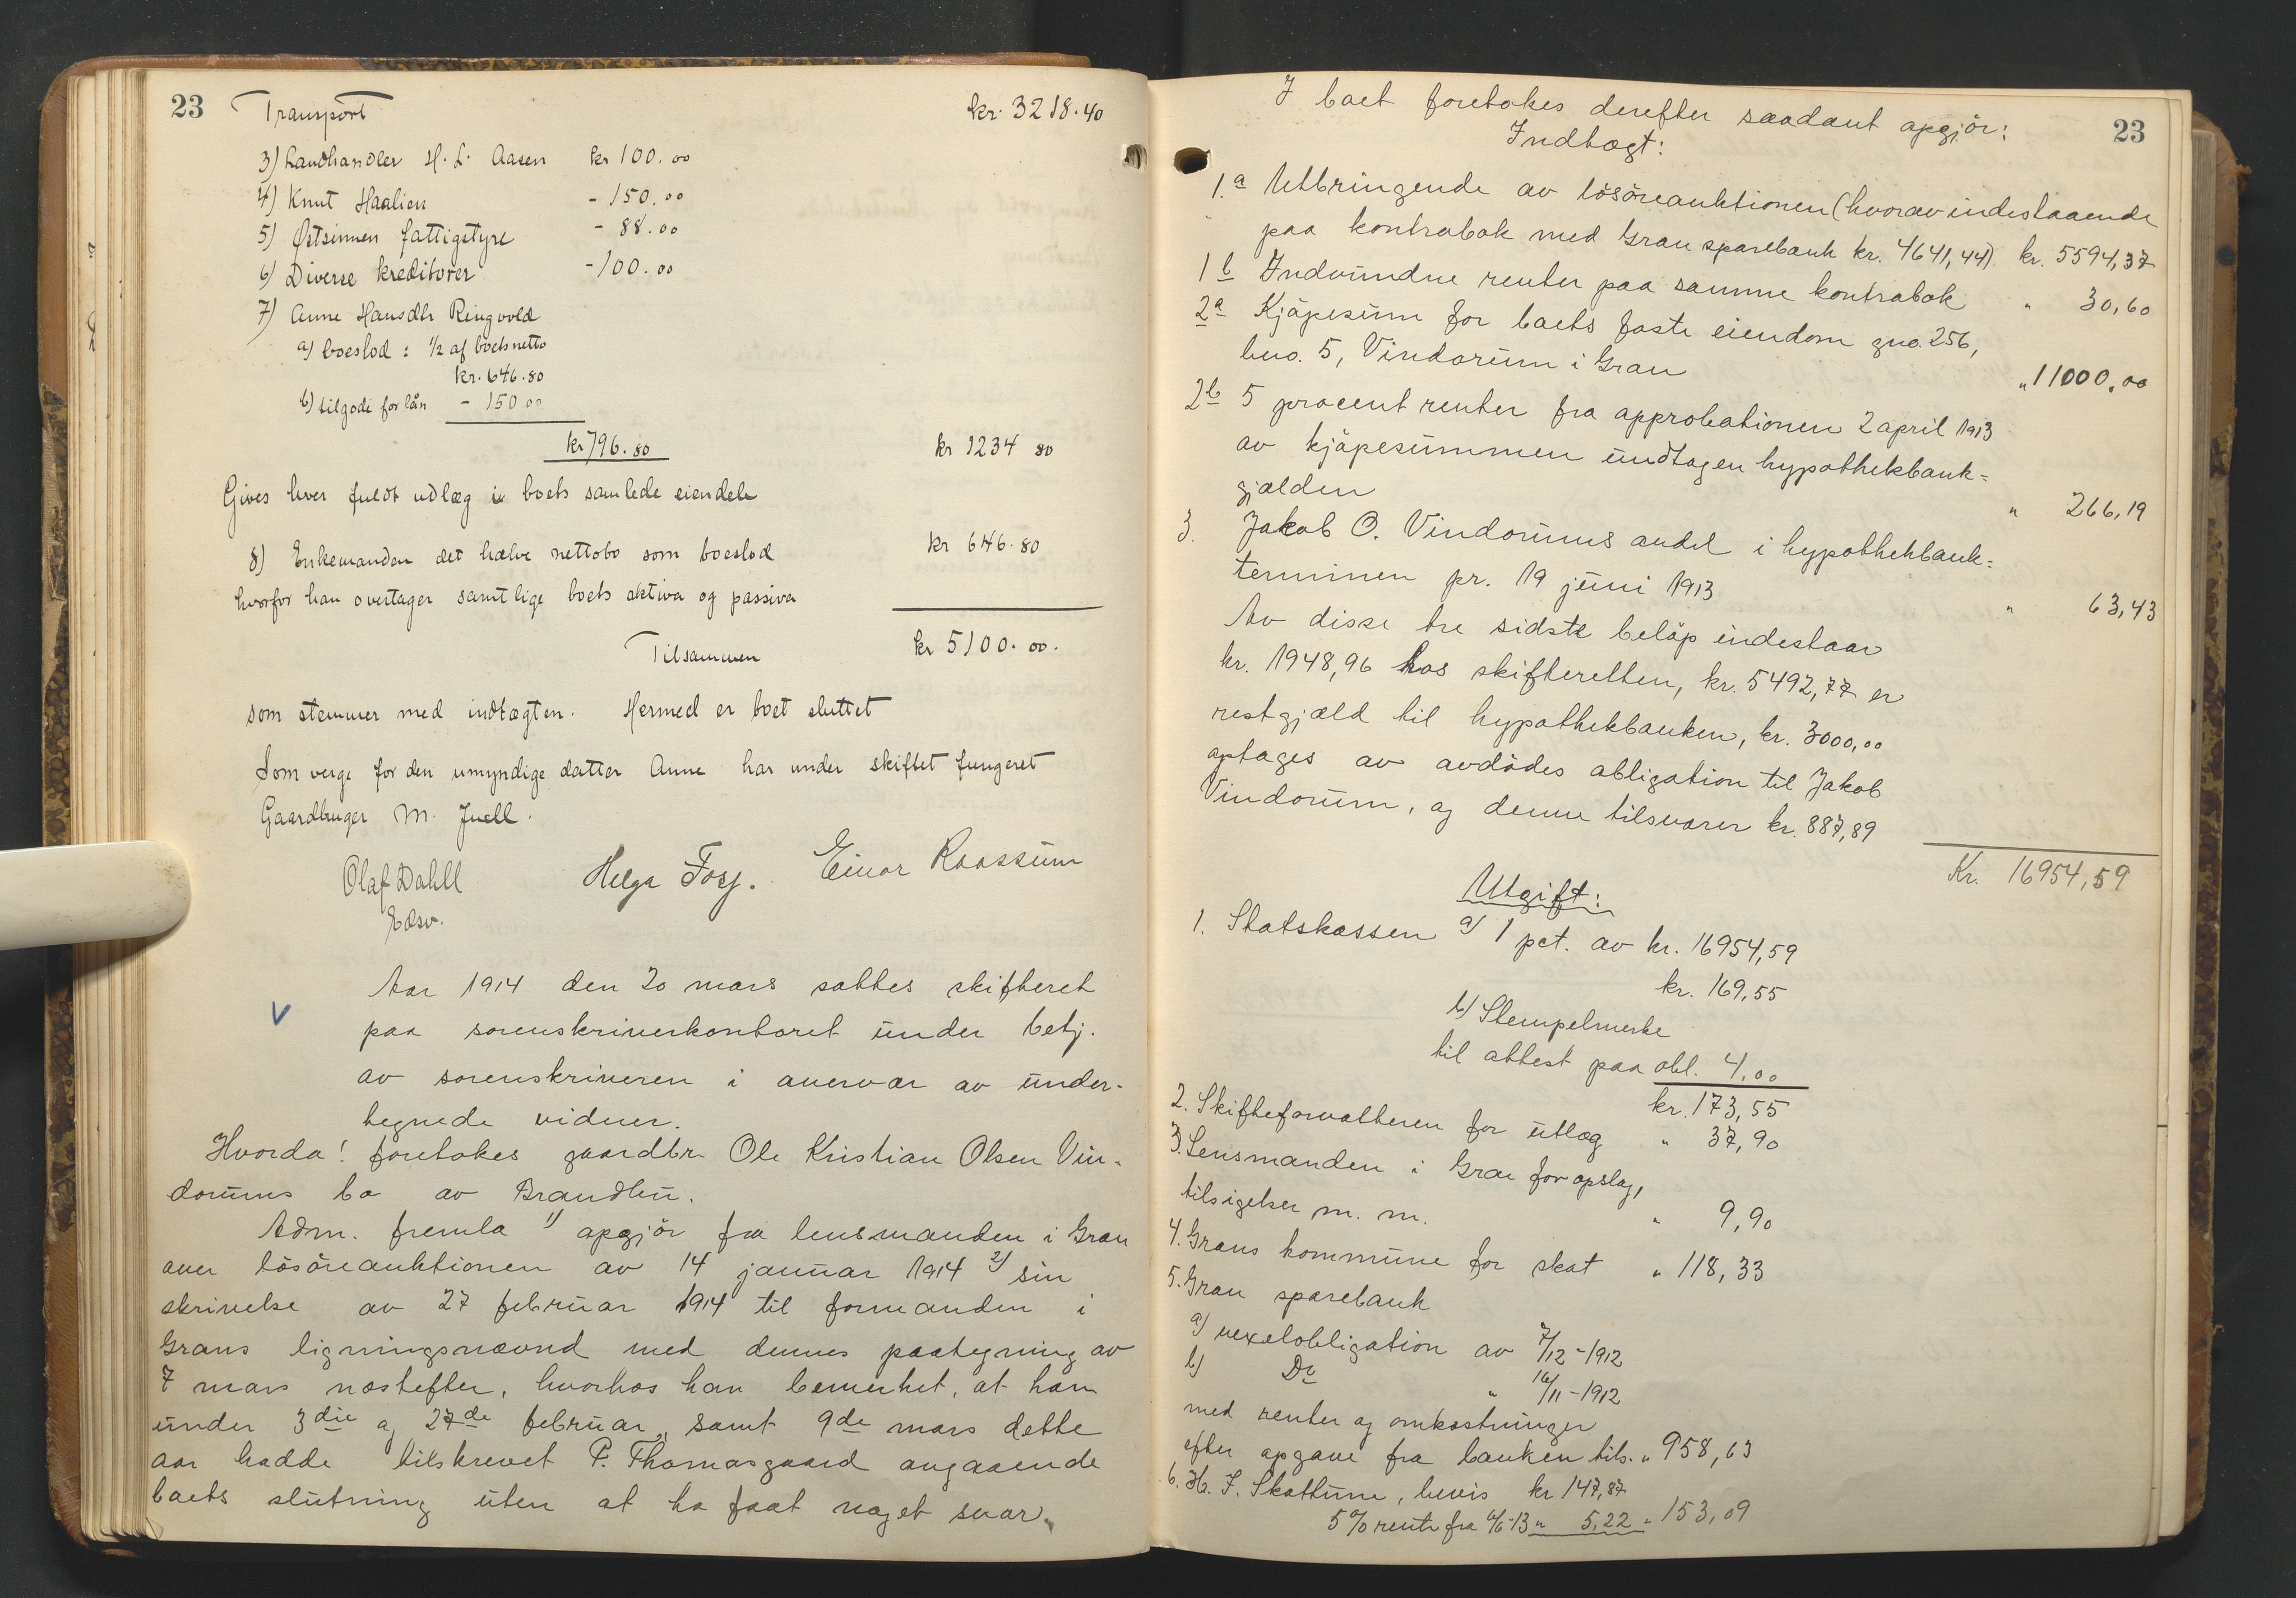 23 Transport kr. 3218.40
3) Landhandler H. L. Aasen kr 100.00
4) Knut Haalien - 150.00
5) Østsinnen fattigstyre - 88.00
6) Diverse kreditorer - 100.00
7) Anne Hansdtr Ringvold
a) boeslod : 1/2 af boets netto
kr. 646.80
b) tilgode for lån - 150 00
kr 796.80 kr 1234 80
Gives hver fuldt udlæg i boets samlede eiendele
8) Enkemanden det halve nettobo som boeslod kr 646.80
hvorfor han overtager samtlige boets aktiva og passiva
Tilsammen kr 5100.00.
som stemmer med indtægten. Hermed er boet sluttet
Som verge for den umyndige datter Anne har under skiftet fungeret
Gaardbruger M. Juell.
Olaf Dahll Helga Einar Raassum
Edsv.
V
Aar 1914 den 20 mars sattes skifteret
paa sorenskriverkontoret under betj.
av sorenskriveren i overvær av under-
tegnede vidner.
Hvorda! foretokes gaardbr. Ole Kristian Olsen Vin-
dorums bo av Brandbu.
Adm. fremla 1) opgjör fra lensmanden i Gran
over lösöreauktionen av 14 januar 1914 2) sin
skrivelse av 27 februar 1914 til formanden i
Grans ligningsnævnd med dennes paategning av
7 mars næstefter, hvorhos han bemerket, at han
under 3die og 27de februar, samt 9de mars dette
aar hadde tilskrevet P. Thomasgaard angaaende
boets slutning uten at ha faat noget svar.
I boet foretokes derefter saadant opgjör: 23
Indtægt:
1.a Utbringende av lösöreauktionen (hvorav indestaaende
paa kontrabok med Gran sparebank kr. 4641,44) kr. 5594,37
1 b Indvundne renter paa samme kontrabok " 30,60
2a Kjöpesum for boets faste eiendom gno. 256,
bno. 5, Vindorum i Gran " 11000,00
2b 5 procent renter fra approbationen 2 april 1913
av kjöpesummen undtagen hypothekbank=
gjælden " 266,19
3. Jakob O. Vindorums andel i hypothekbank=
terminen pr. 19 juni 1913 " 63,43
Av disse tre sidste belöp indestaar
kr. 1948,96 hos skifteretten, kr. 5492,77 er
restgjæld til hypothekbanken, kr. 3000,00
optages av avdödes obligation til Jakob
Vindorum, og denne tilsvarer kr. 887,89
Kr. 16954,59
Utgift:
1. Statskassen a) 1 pct. av kr. 16954,59
kr. 169,55
b) Stempelmerke
til attest paa obl. 4,00
kr. 173,55
2. Skifteforvalteren for utlæg " 37,90
3. Lensmanden i Gran for opslag,
tilsigelser m. m. " 9,90
4. Grans kommune for skat " 118,33
5. Gran sparebank
a) vexelobligation av 7/12-1912
b) Do " 16/11-1912
med renter og omkostninger
efter opgave fra banken tils. " 958,63
6. H. J. Skattum, bevis kr 147,87
5 % rente fra 6/6-13 " 5,22 " 153,09